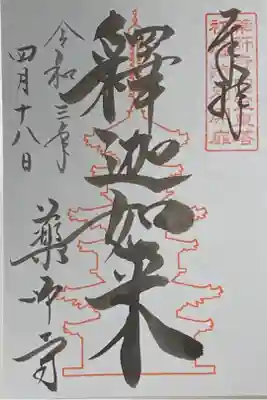 奉拝
釋迦如来
令和三年
四月十八日
藥師寺